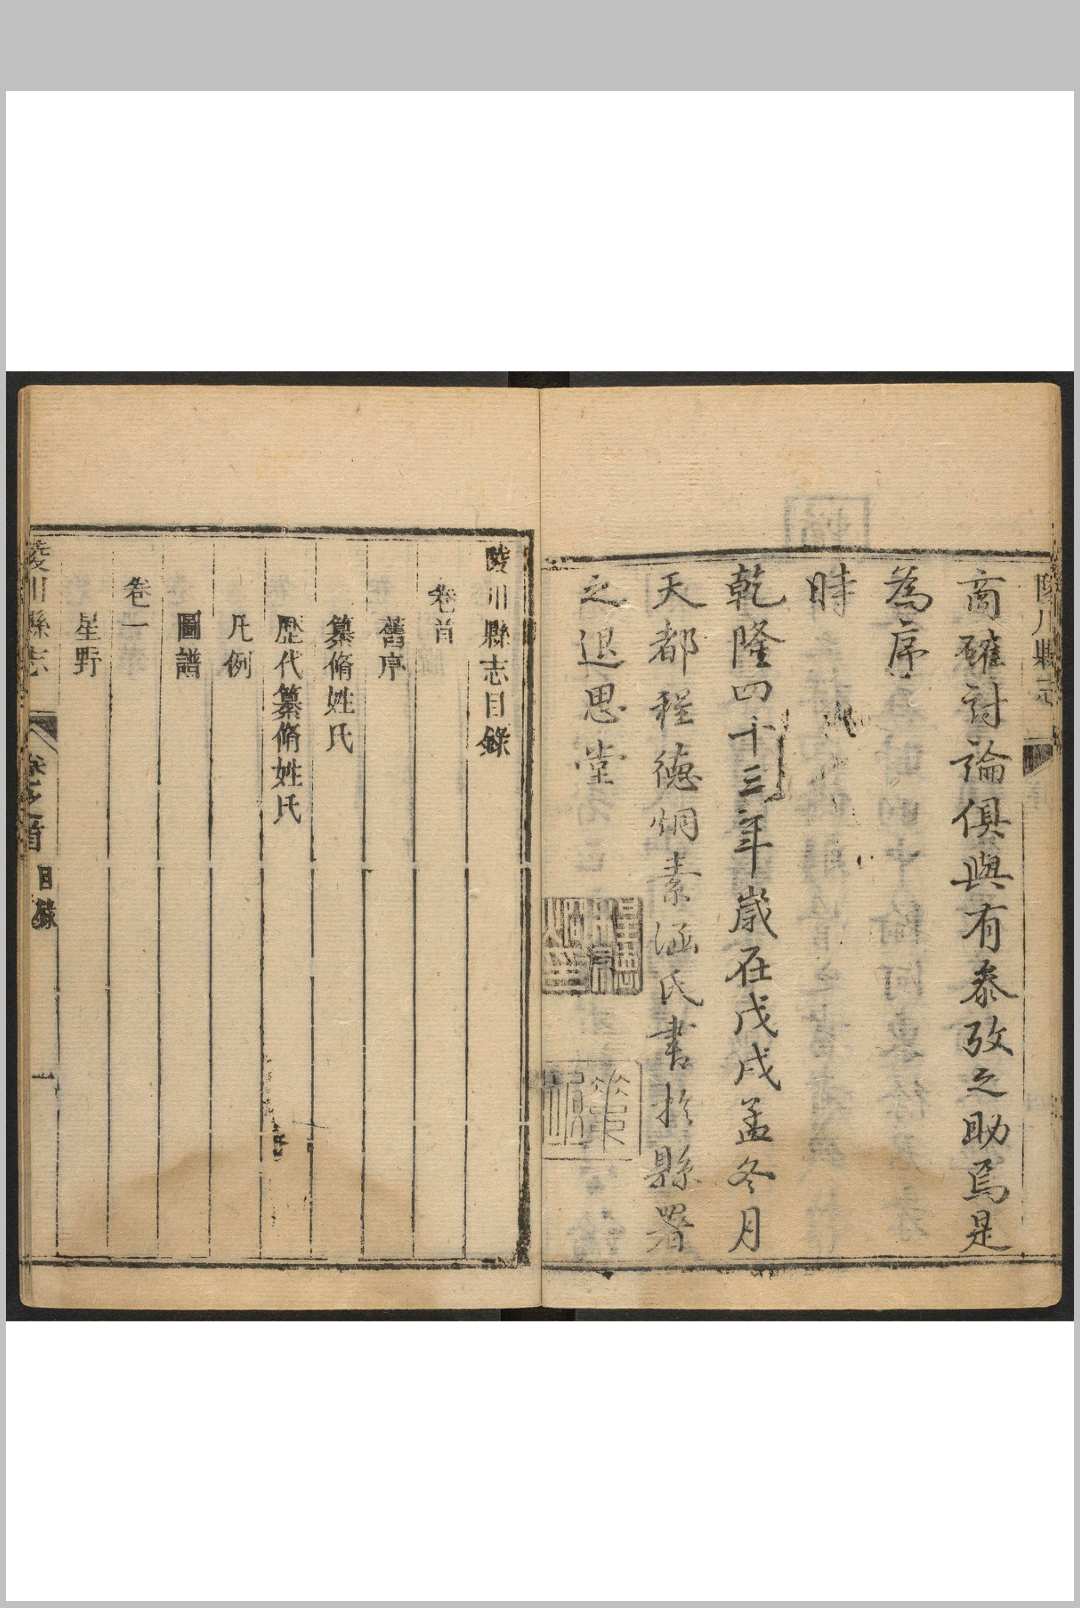 陵川縣志
商確討論俱與有叅攷之助焉是
為序
時
乾隆四十三年歲在戊戌孟冬月
天都程德炯素涵氏書於縣署
之退思堂
陵川縣志目錄
卷首
舊序
纂脩姓氏
歷代纂脩姓氏
凡例
圖譜
卷一
星野
陵川縣志
卷之首
目錄
一